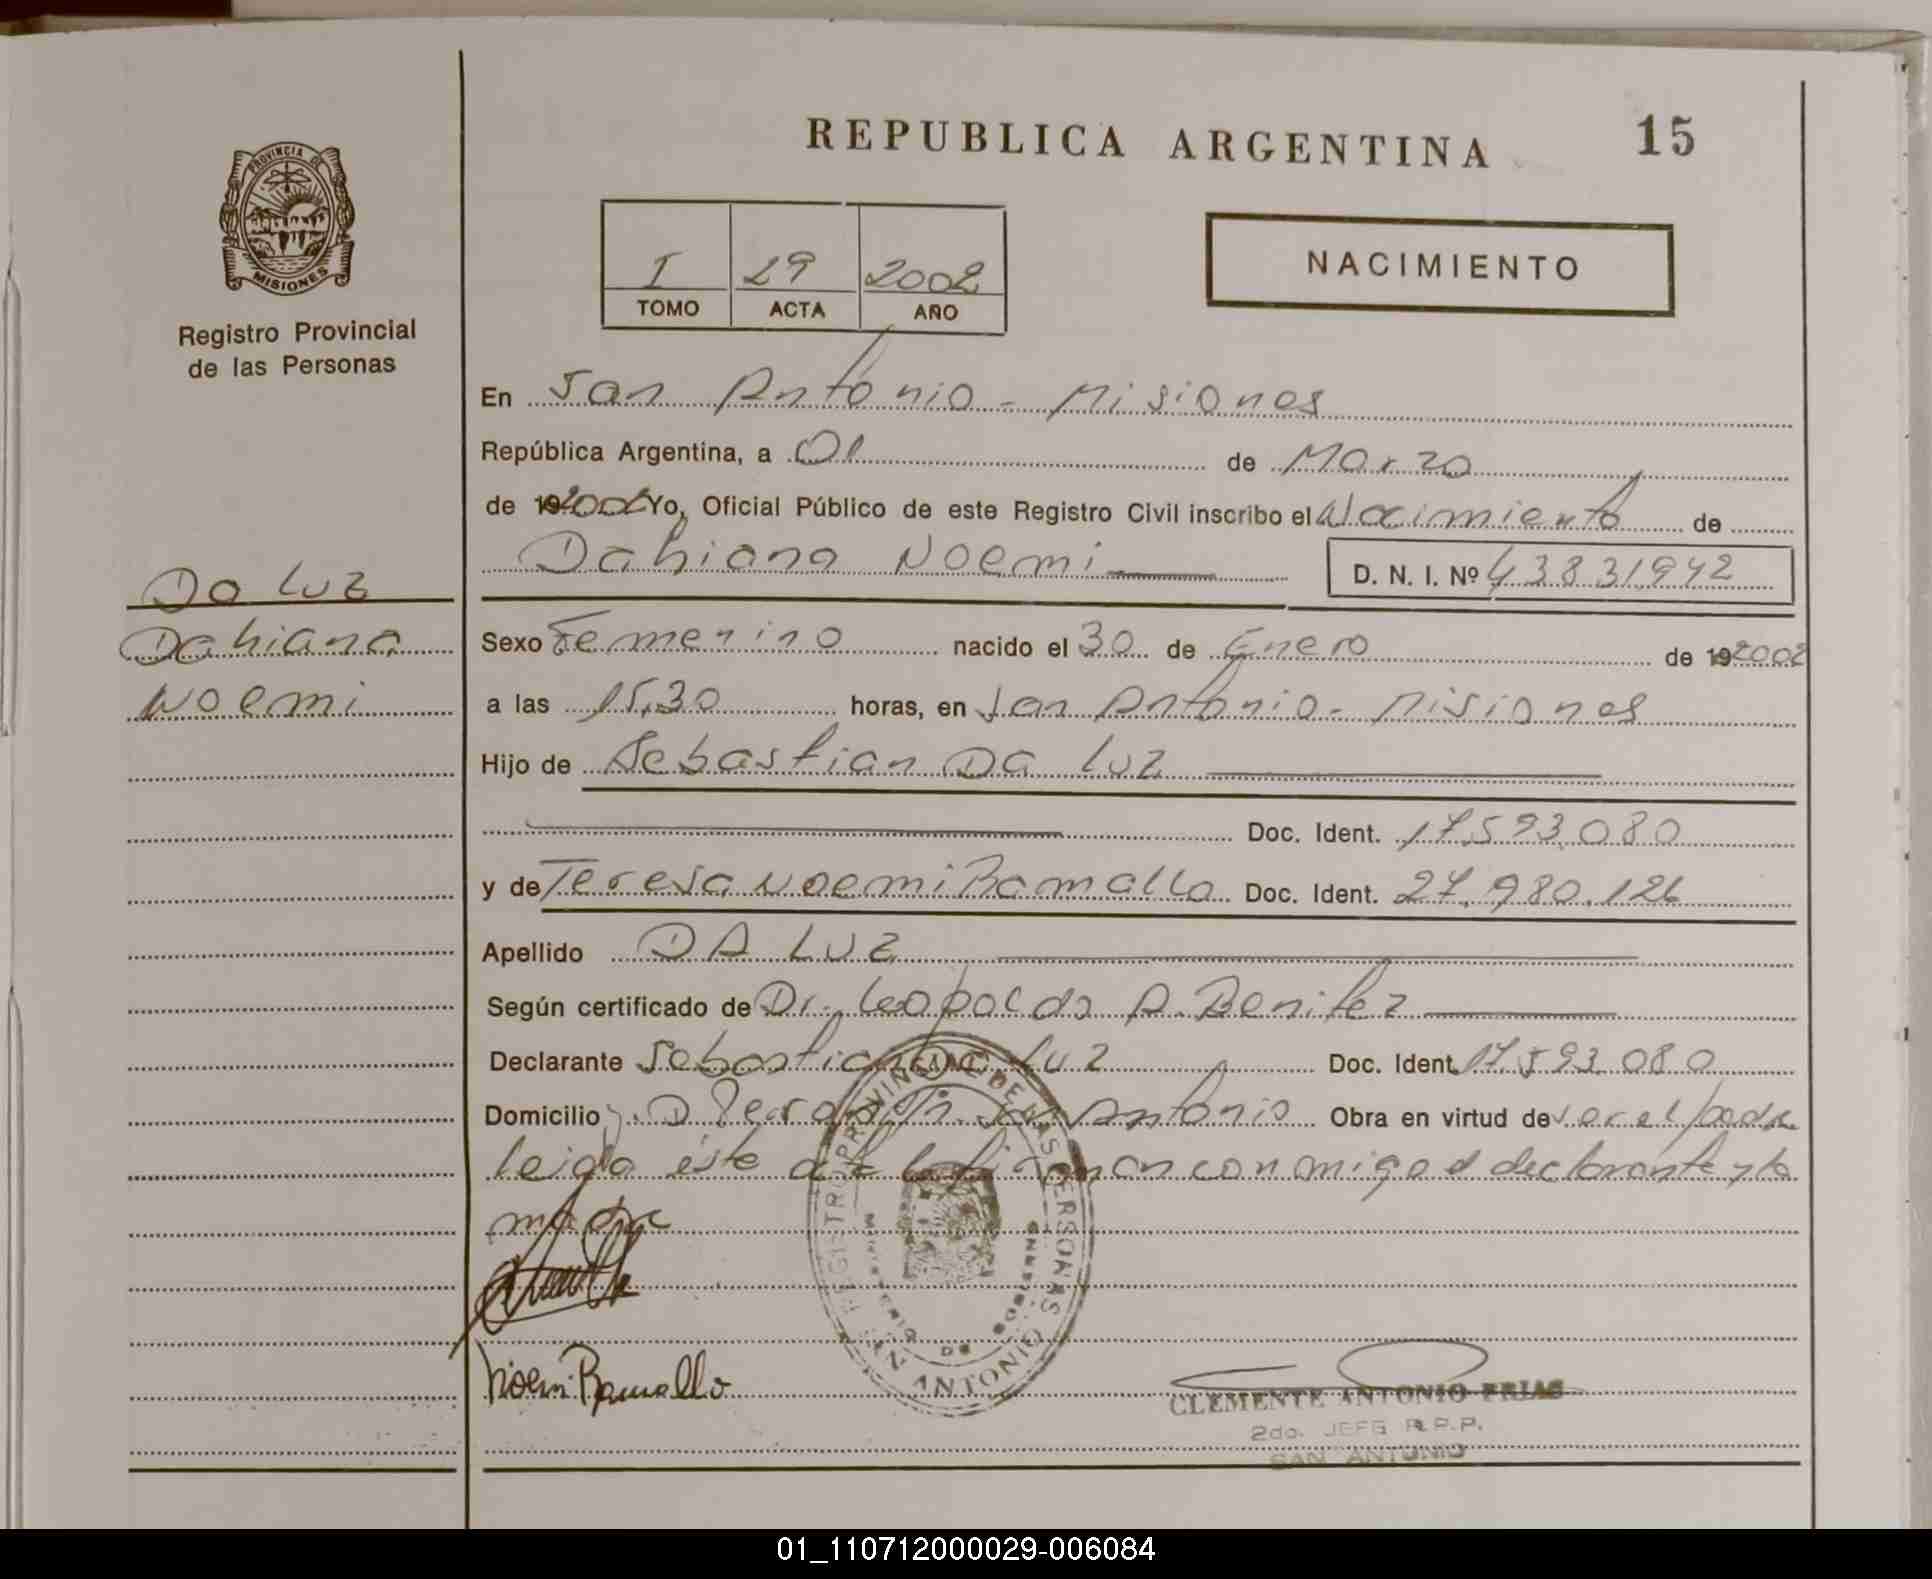 REPUBLICA ARGENTINA
15
PROVINCIA DE
MISIONES
Registro Provincial
de las Personas
I 29 2002
TOMO ACTA AÑO
NACIMIENTO
En San Antonio - Misiones
República Argentina, a 01 de Marzo
de 192002 Yo, Oficial Público de este Registro Civil inscribo el Nacimiento de
Dahiana Noemi
D. N. I. Nº 43831942
Da Luz
Dahiana
Noemi
Sexo Femenino nacido el 30 de Enero de 192002
a las 15,30 horas, en San Antonio - Misiones
Hijo de Sebastian Da Luz
Doc. Ident. 17.593.080
y de Teresa Noemi Ramallo Doc. Ident. 27.980.126
Apellido DA LUZ
Según certificado de Dr. Leopoldo A. Benitez
Declarante Sebastian Da Luz Doc. Ident. 17.593.080
Domicilio San Antonio Obra en virtud de ser el padre
leida este acta la firman conmigo el declarante y la
madre
Noemi Ramallo
REGISTRO PROVINCIAL DE LAS PERSONAS
MINISTERIO DE GOBIERNO
SAN ANTONIO
CLEMENTE ANTONIO FRIAS
2do. JEFE R.P.P.
SAN ANTONIO
01_110712000029-006084